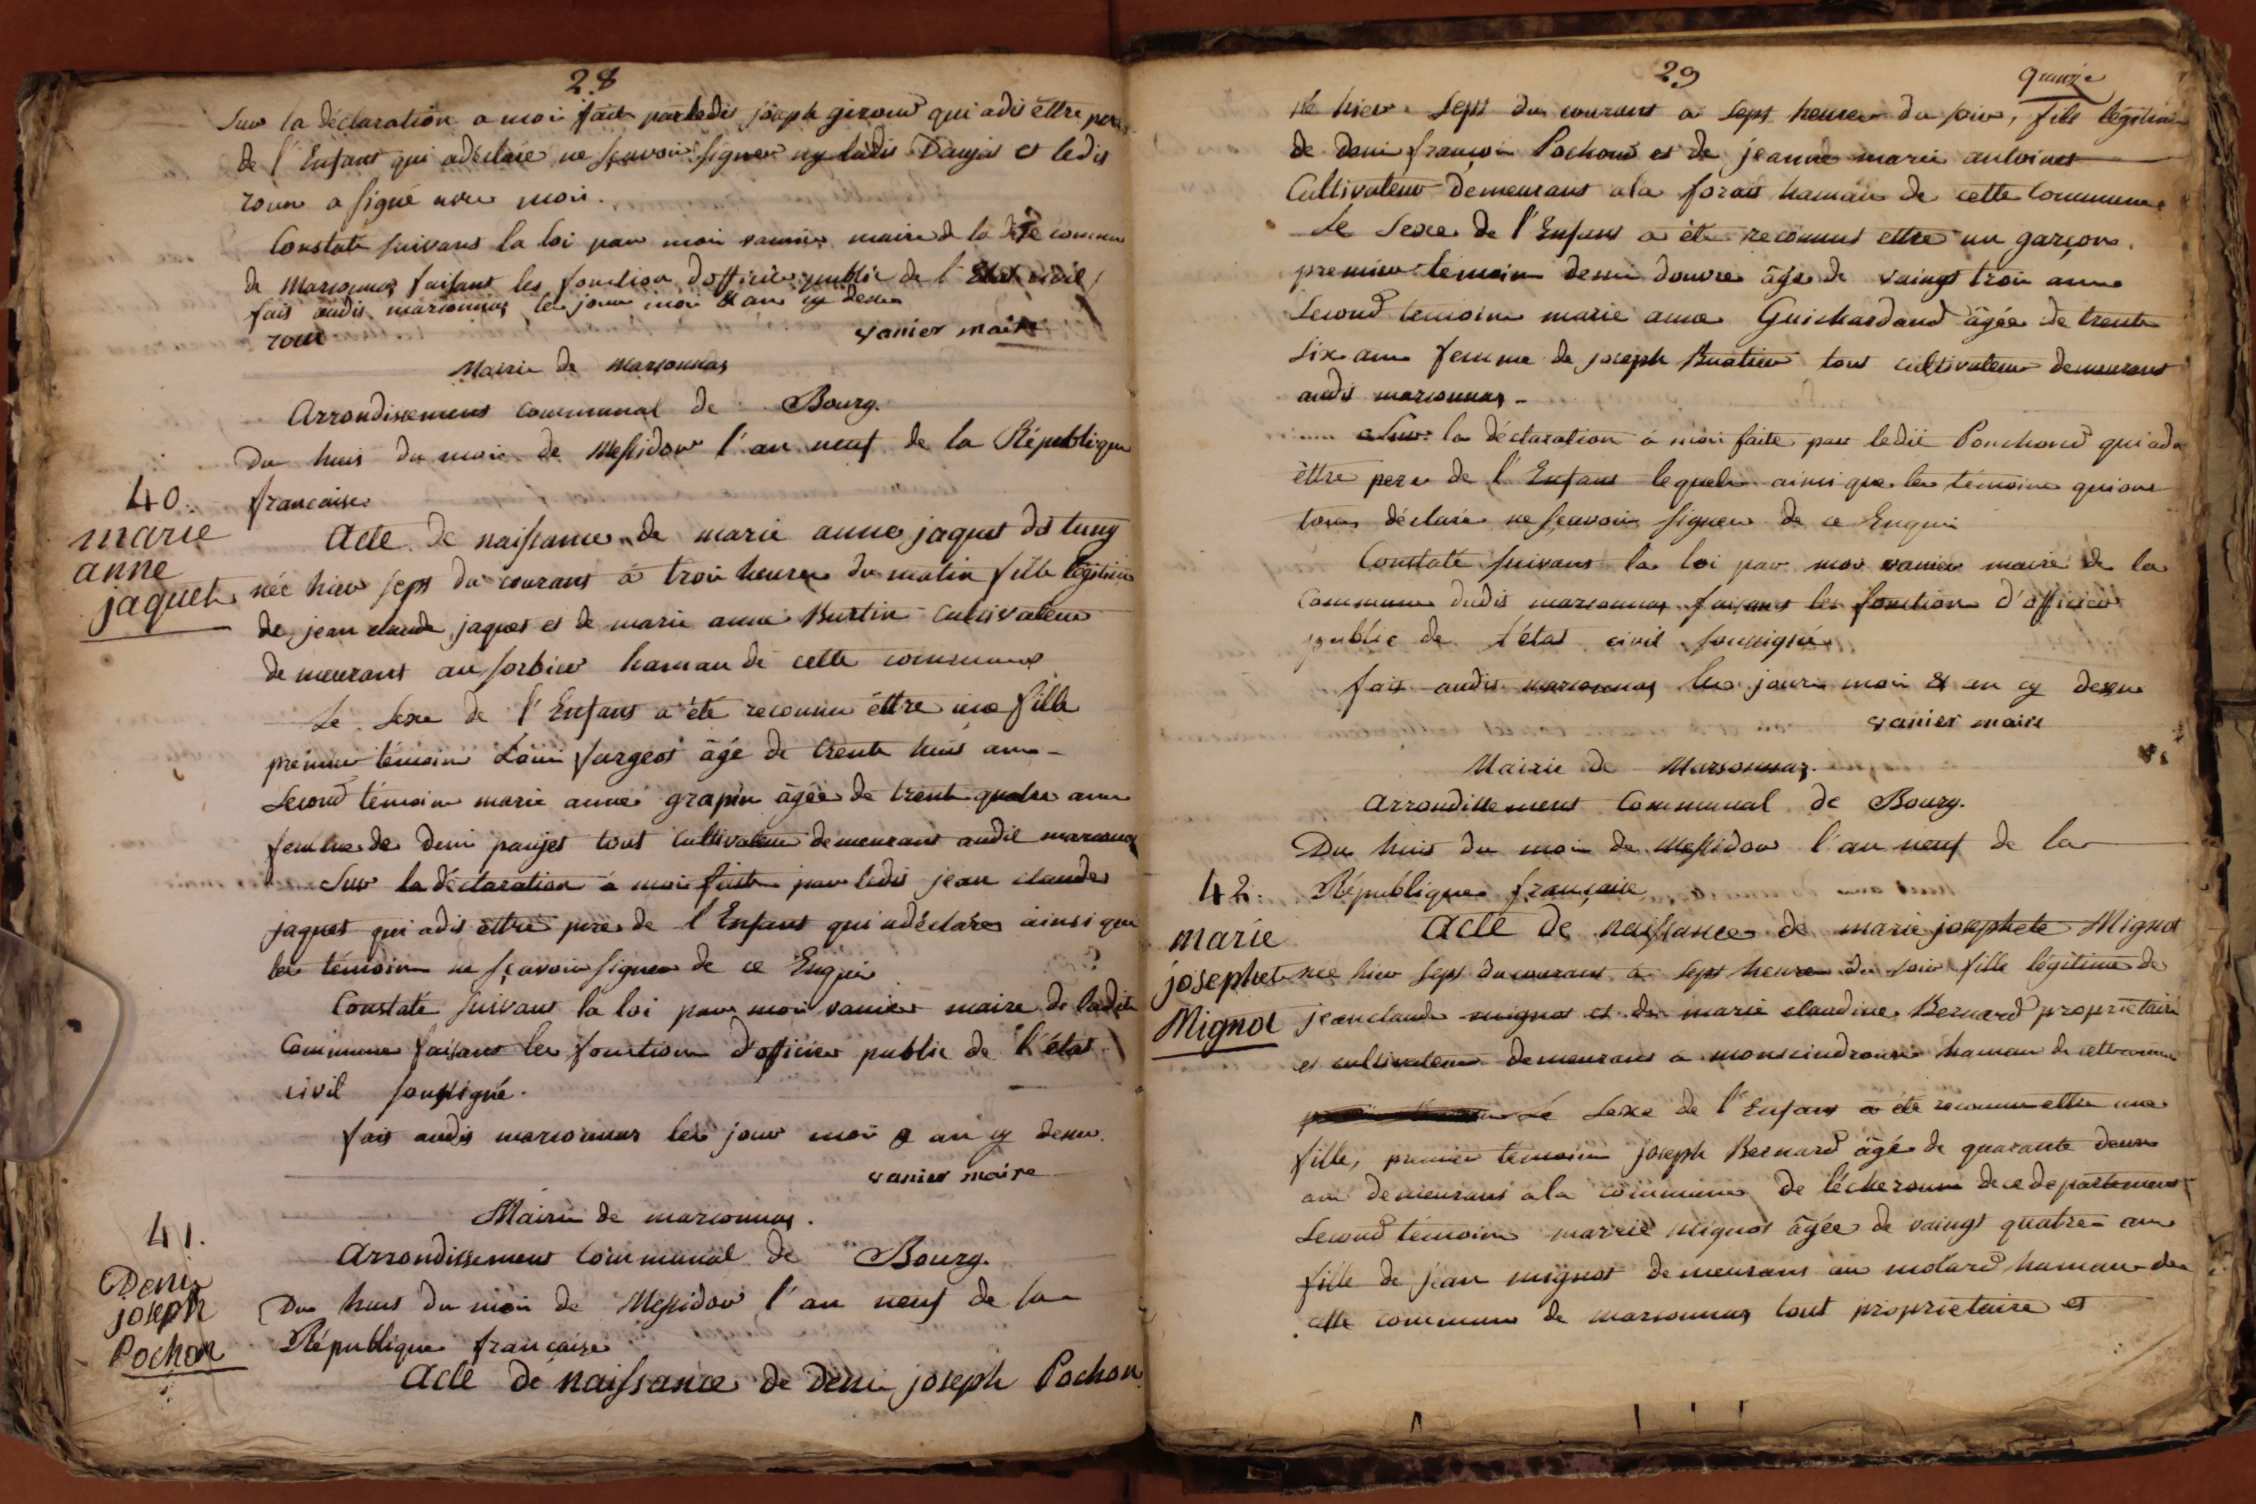 28
Sur la déclaration a moi fait par ledis joseph giroud qui adis êttre pere
de l'Enfant qui adéclaré ne sçavoir signer ny ladis Daujat et ledis
roux a signé avec moi.
Constaté suivans la loi par moi vanier maire de la dte commune
de Marsonnas faisant les fonction d'officier public de l'Etat civil
fais audis marsonnas les jour moi & an cy dessu
roux vanier maire
Mairie de Marsonnas
Arrondissement communal de Bourg.
Du huis du mois de Messidor l'an neuf de la République
française
40.
marie
anne
jaquet
Acte de naissance de marie anne jaquet dit tuny
née hier sept du courant à trois heures du matin fille légitime
de jean claude jaquet et de marie anne Burtin cultivateur
demeurant au sorbier hamau de cette commune
Le Sexe de l'Enfant a été reconnu êttre une fille
premier témoin Loui fargeot âgé de trente huis ans
Second témoin marie anne grapin âgée de trente quatre ans
femme de deni panjet tout cultivateur demeurant audit marsonnas
Sur la déclaration à moi faite par ledis jean claude
jaquet qui adis êttre père de l'Enfant qui adéclaré ainsi que
les témoins ne sçavoir signer de ce Enquis
Constaté suivant la loi par moi vanier maire de ladite
Commune faisant les fonction d'officier public de l'état
civil soussigné.
fais audis marsonnas les jour moi & an cy dessu.
vanier maire
Mairie de marsonnas.
Arrondissement Communal de Bourg.
41.
Denis
joseph
Pochon
Du huis du mois de Messidor l'an neuf de la
République française
Acte de naissance de deni joseph Pochon
29
quinze
né hier sept du courant à sept heures du soir, fils légitime
de deni françois Pochond et de jeanne marie antoinet
Cultivateur demeurant ala forais hamau de cette Commune
Le Sexe de l'Enfant a été reconnut êttre un garçon.
premier temoin deni douvre âgé de vaingt trois anne
Second temoin marie anne Guichardand âgée de trente
Six ans femme de joseph Buatier tout cultivateur demeurant
audis marsonnas
Sur la déclaration à moi faite par ledit Ponchond qui adis
êttre pere de l'Enfant lequel ainsi que les témoins qui ont
tous déclaré ne sçavoir signer de ce Enquis
Constaté suivant la loi par moi vanier maire de la
Commune dudis marsonnas faisant les fonction d'officier
public de l'état civil soussigné
fais audis marsonnas les jours moi & an cy dessu
vanier maire
Mairie de Marsonnas.
Arrondissement Communal de Bourg.
Du huis du mois de Messidor l'an neuf de la
42. République française
marie
josephet
Mignot
Acte de naissance de marie josephete Mignot
née hier sept du courant à sept heures du soir fille légitime de
jean claude mignot et de marie claudine Bernard propriétaire
et cultivateur demeurant a hamau de cette commune
Le Sexe de l'Enfant a été reconnu êttre une
fille, premier temoin joseph Bernard âgé de quarante deux
ans demeurant ala commune de lécheroux de ce departement
Second témoin marie mignot âgée de vaingt quatre ans
fille de jean mignot demeurant au molard hamau de
cette commune de marsonnas tout proprietaire et